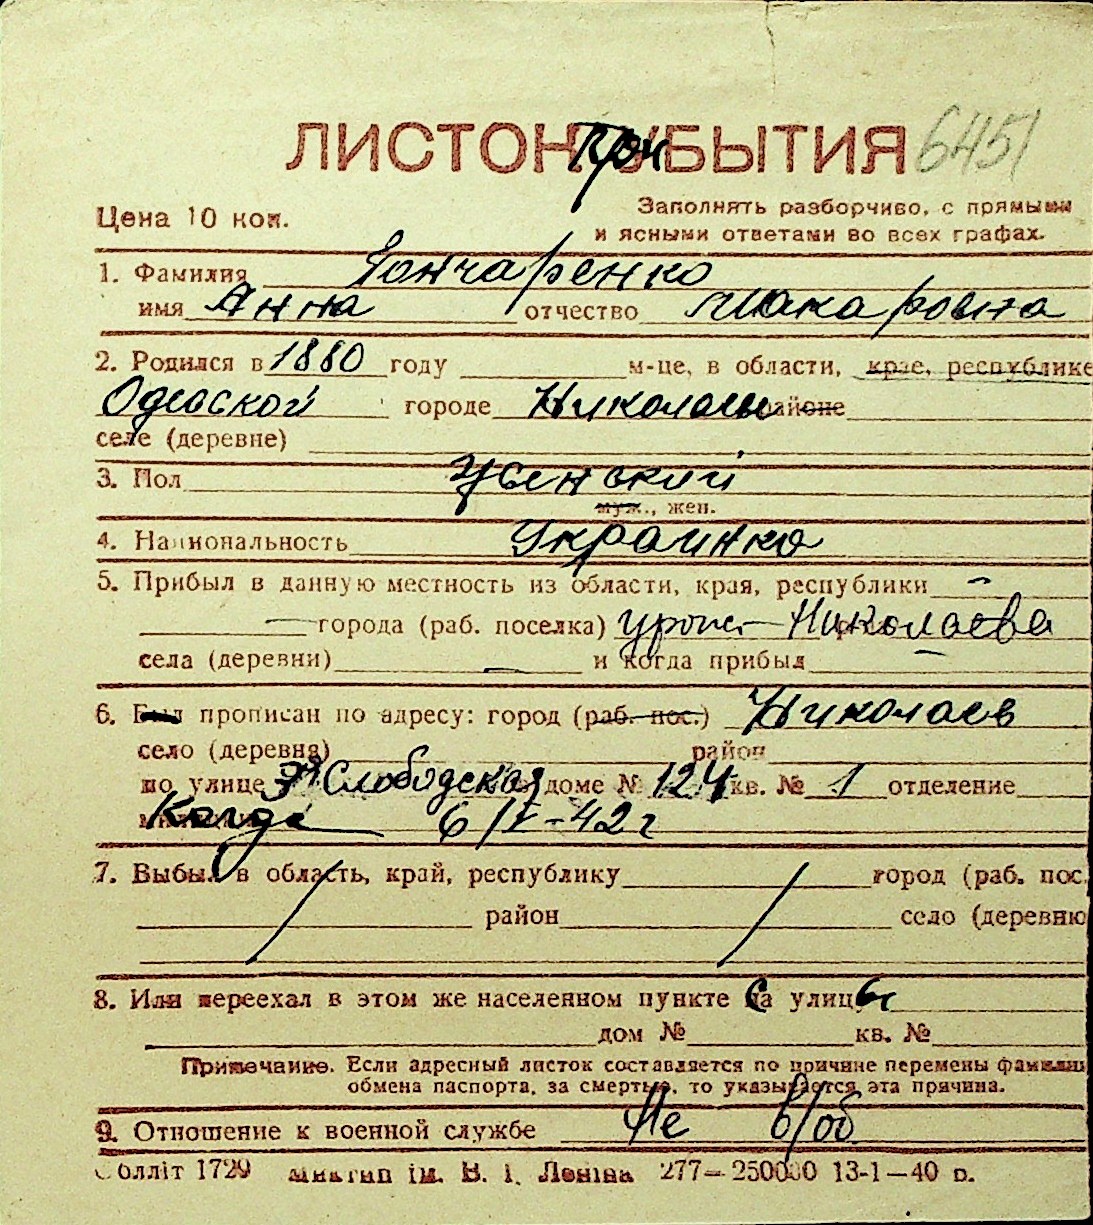 ЛИСТОК При УБЫТИЯ 6451
Цена 10 коп. Заполнять разборчиво, с прямыми
и ясными ответами во всех графах.
1. Фамилия Гончаренко
имя Анна отчество Макаровна
2. Родился в 1880 году м-це, в области, крае, республике
Одесской городе Николаеве районе
селе (деревне)
3. Пол Женский
муж., жен.
4. Национальность Украинка
5. Прибыл в данную местность из области, края, республики —
— города (раб. поселка) урож. Николаева
села (деревни) — и когда прибыл
6. Был прописан по адресу: город (раб. пос.) Николаев
село (деревня) район
по улице Слободская доме № 124 кв. № 1 отделение
Когда 6/V-42 г
7. Выбыл в область, край, республику город (раб. пос.
район село (деревню
8. Или переехал в этом же населенном пункте с улицы
дом № кв. №
Примечание. Если адресный листок составляется по причине перемены фамилии
обмена паспорта, за смертью, то указывается эта причина.
9. Отношение к военной службе Не в/об
Облліт 1729 ім. В. І. Леніна 277—250000 13-1—40 р.